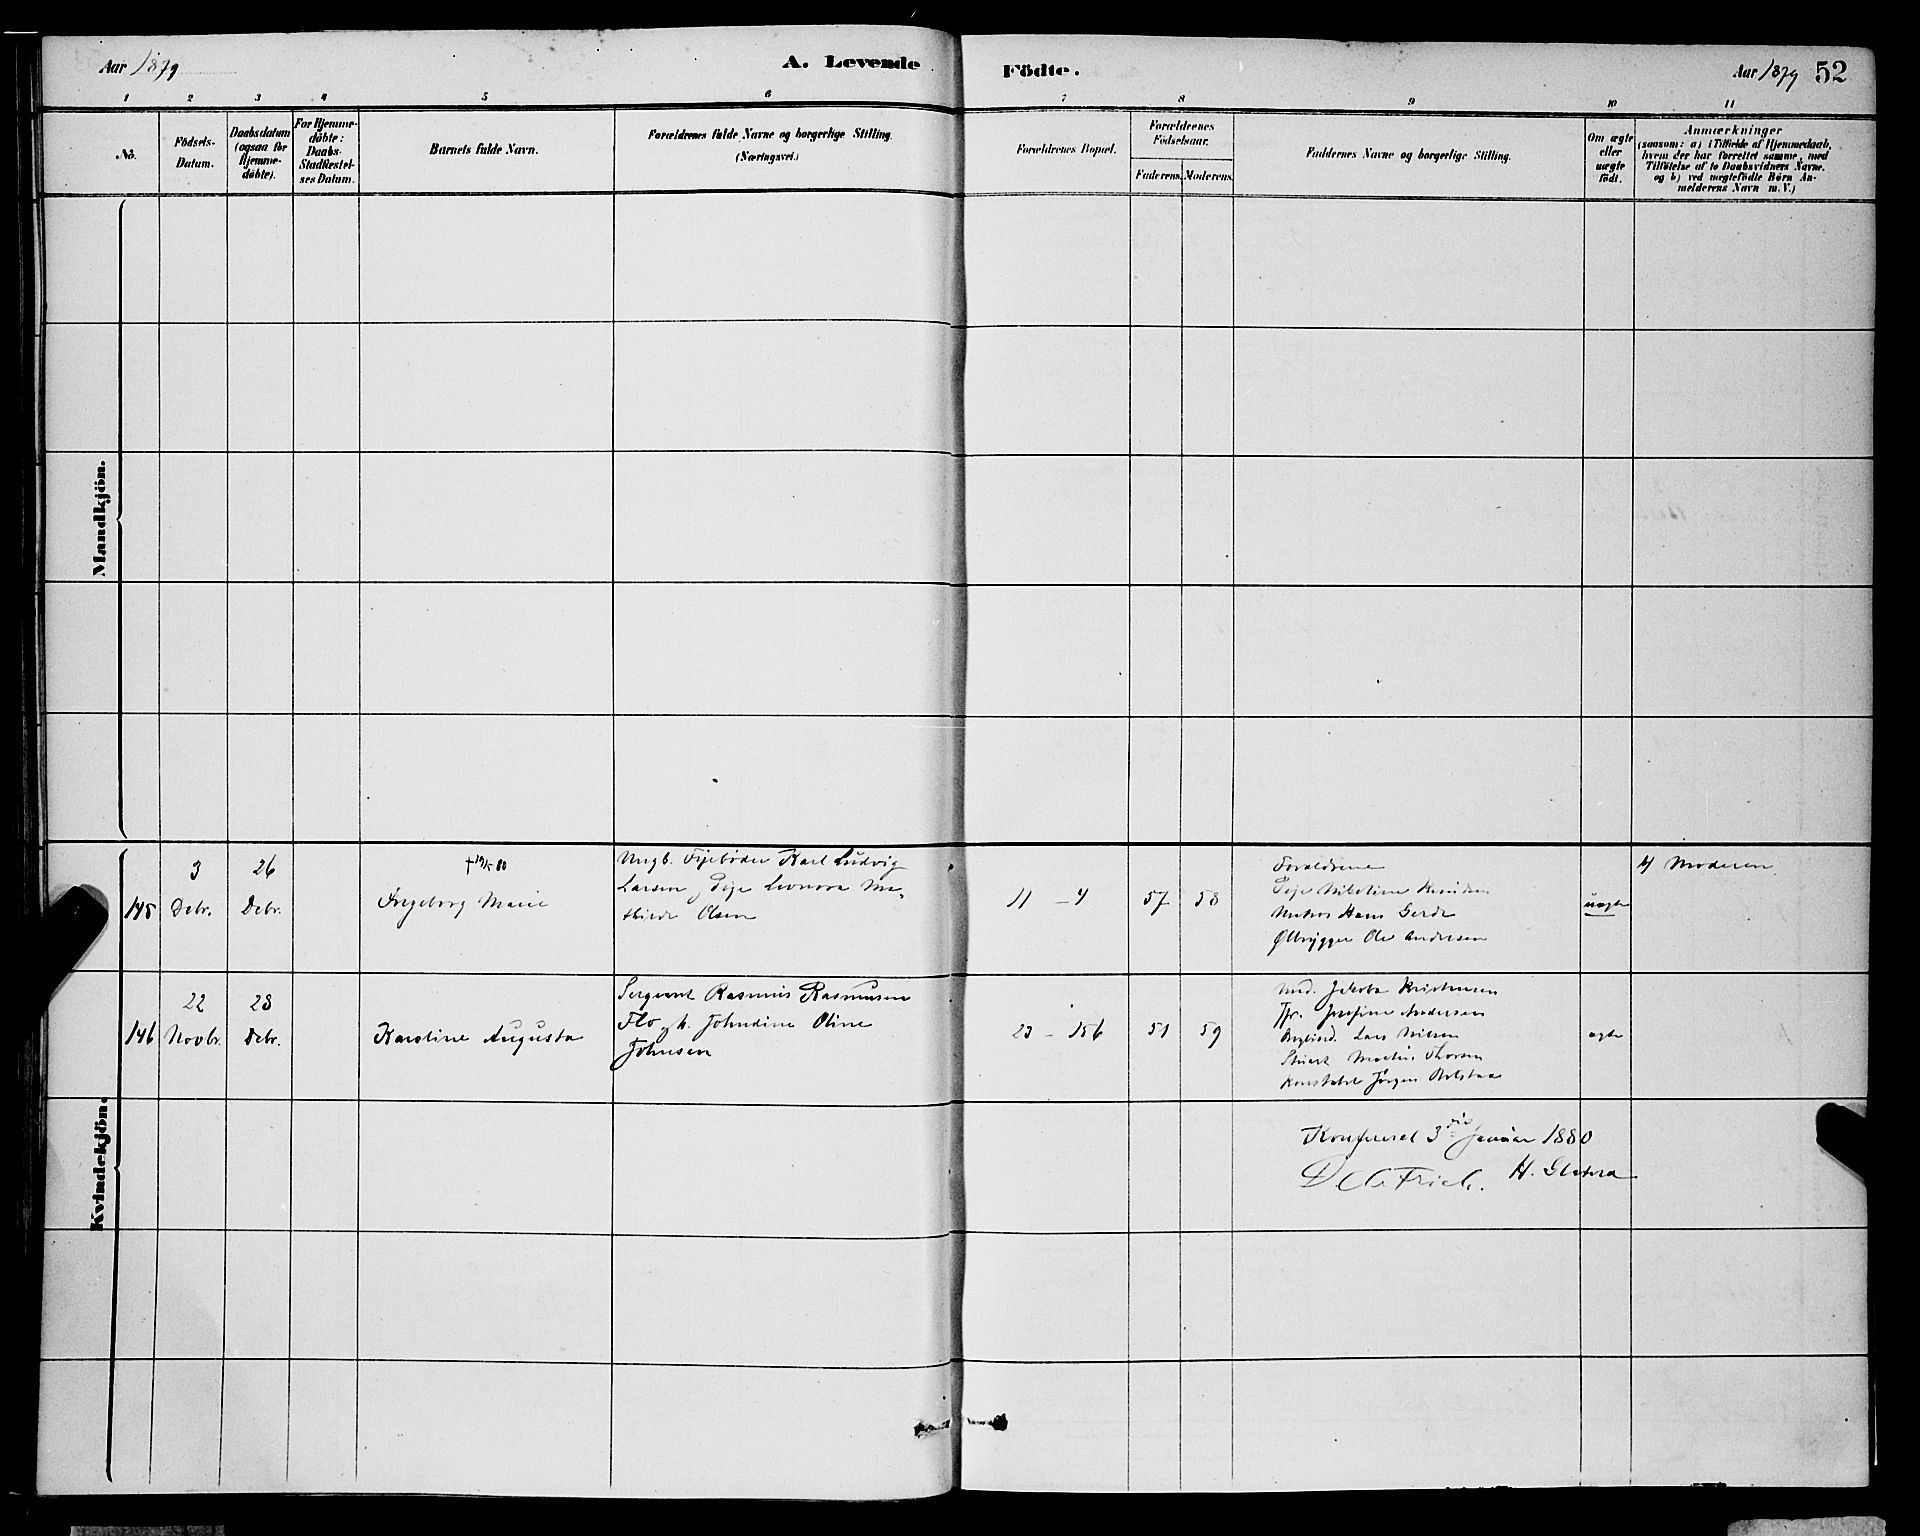 Aar 1879
A. Levende
Födte.
Aar 1879 52
1 2 3 4 5 6 7 8 9 10 11
No.
Födsels-
Datum.
Daabsdatum
(ogsaa for
Hjemme-
döbte).
For Hjemme-
döbte:
Daabs-
Stadfæstel-
ses Datum.
Barnets fulde Navn.
Forældrenes fulde Navne og borgerlige Stilling.
(Næringsvei.)
Forældrenes Bopæl.
Forældrenes
Födselsaar.
Faderens. Moderens.
Faddernes Navne og borgerlige Stilling.
Om ægte
eller
uægte
födt.
Anmærkninger
(saasom: a) i Tilfælde af Hjemmedaab,
hvem der har forrettet samme, med
Tilföielse af to Daabsvidners Navne,
og b) ved uægtefödte Börn An-
melderens Navn m. V.)
Mandkjön.
Kvindekjön.
145
3
Debr.
26
Debr.
Ingeborg Marie
Ungk. Karl Ludvig
Larsen, Pige Leonora Ma-
thilde Olsen
11 - 4
57
58
Forældrene
Pige Nikoline Knudsen
Matros Hans Gerdr
Ølbrygger Ole Andersen
uægte
Moderen
146
22
Novbr.
28
Debr.
Karoline Augusta
Sergeant Rasmus Rasmussen
Flo og h. Johndine Oline
Johnsen
23 - 156
51
59
Mad. Jakoba Kristensen
Jfr. Josefine Andersen
Lars Nilsen
Martin Thorsen
Konstabel Jörgen
ægte
Konfereret 3die Januar 1880